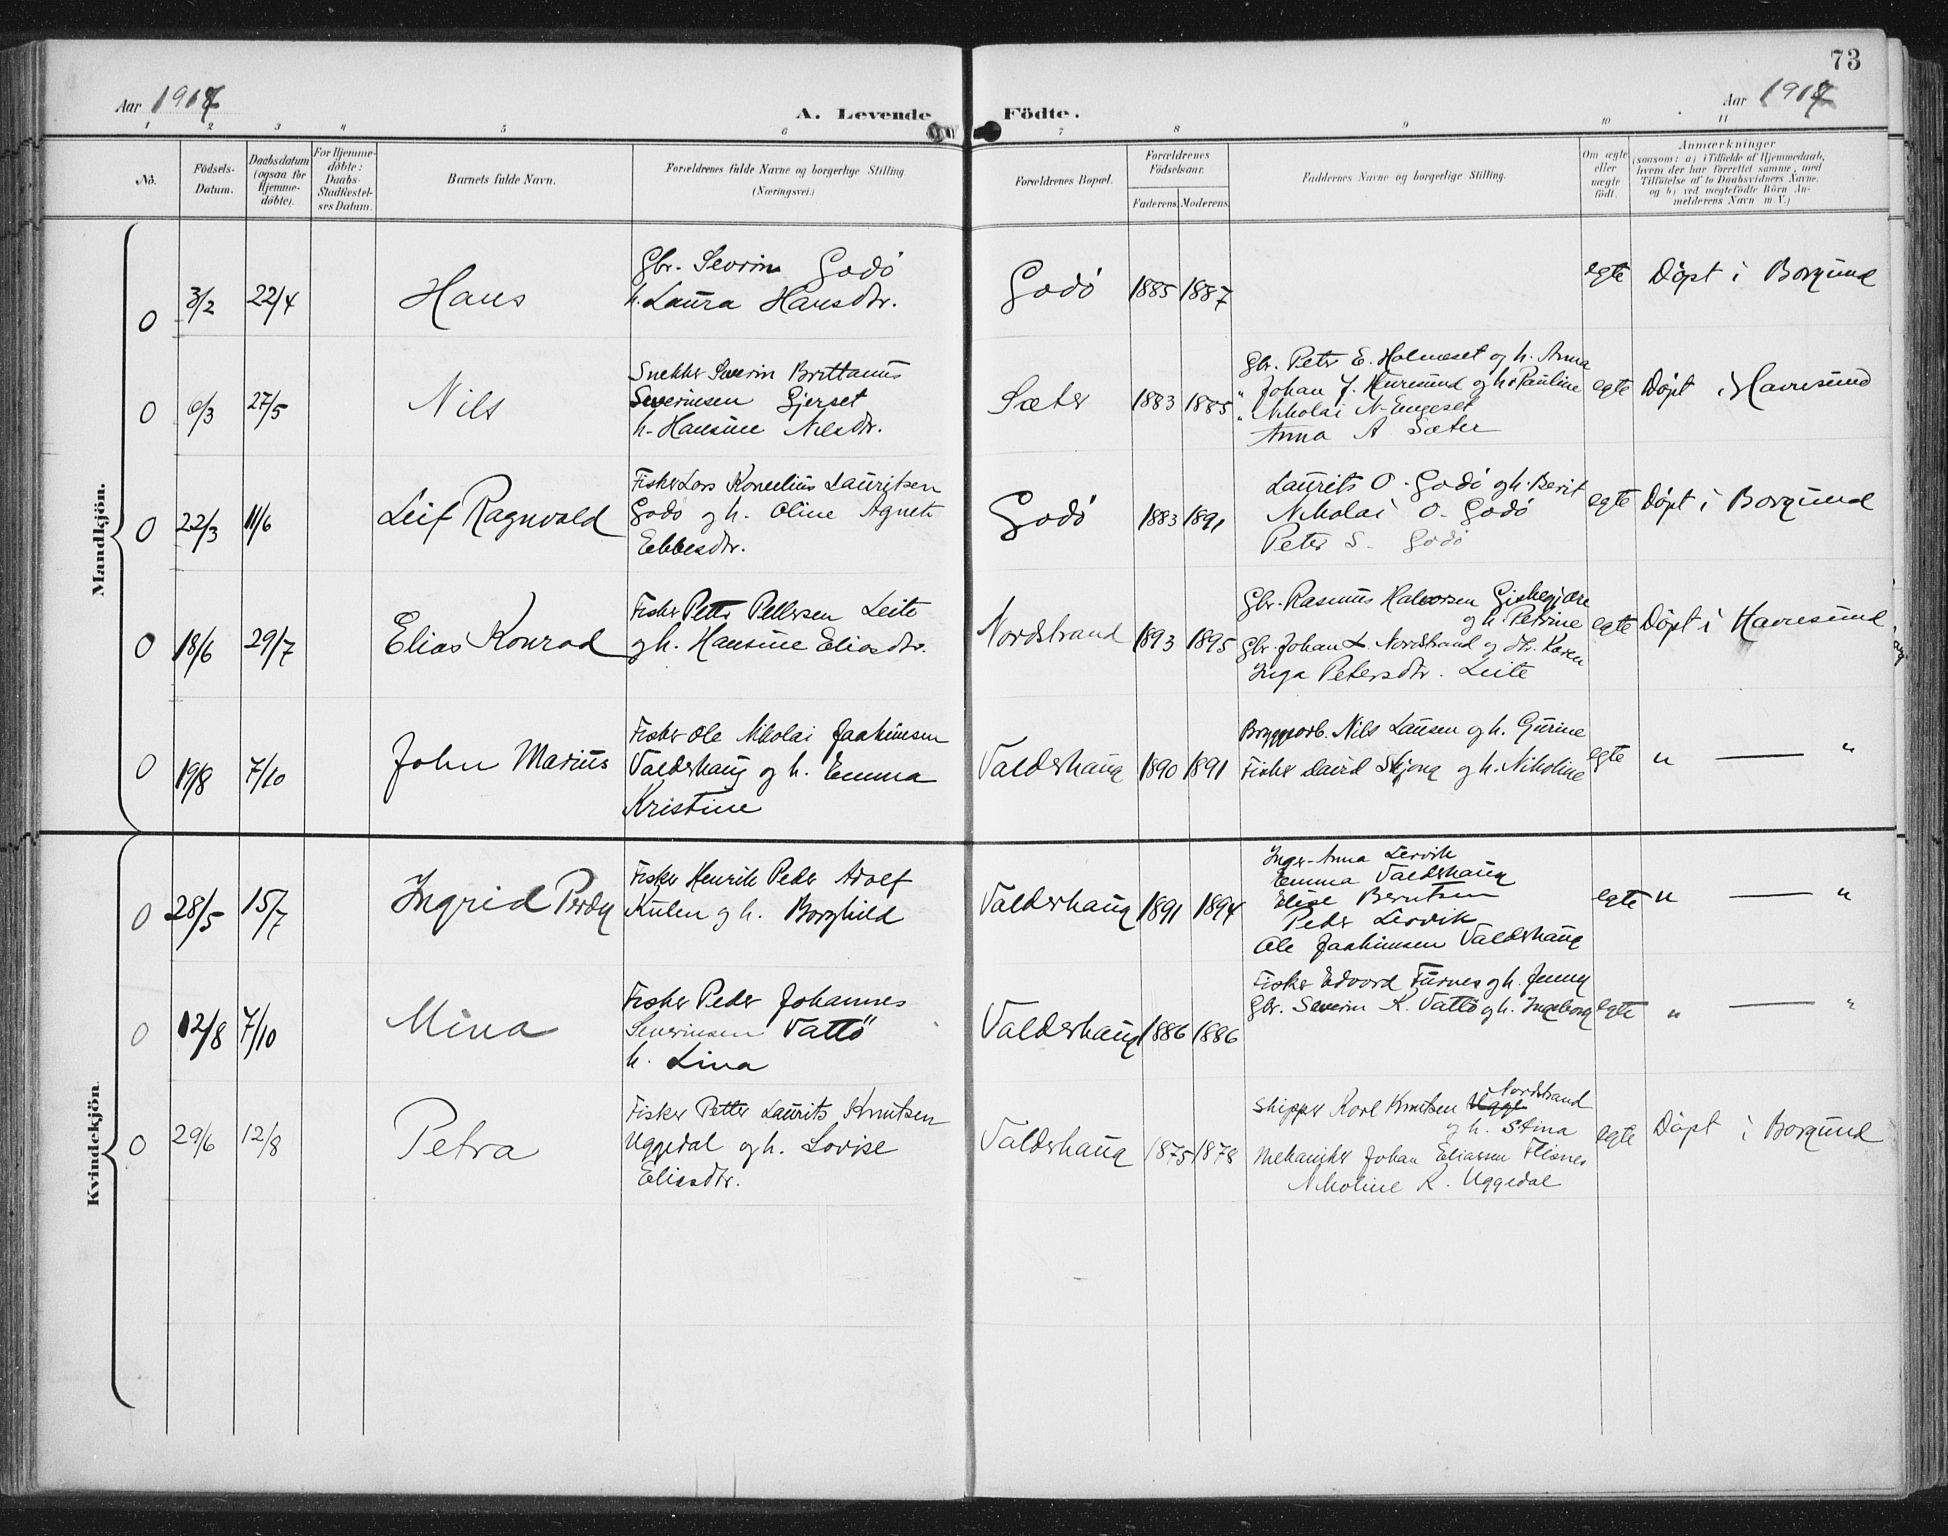 73
Aar 1917
A. Levende
Födte.
Aar 1917
1 2 3 4 5 6 7 8 9 10 11
No.
Födsels-
Datum.
Daabsdatum
(ogsaa for
Hjemme-
döbte).
For Hjemme-
döbte:
Daabs-
Stadfæstel-
ses Datum.
Barnets fulde Navn.
Forældrenes fulde Navne og borgerlige Stilling.
(Næringsvei.)
Forældrenes Bopæl.
Forældrenes
Födselsaar.
Faderens. Moderens.
Faddernes Navne og borgerlige Stilling.
Om ægte
eller
uægte
födt.
Anmærkninger
(saasom: a) i Tilfælde af Hjemmedaab,
hvem der har forrettet samme, med
Tilföielse af to Daabsvidners Navne,
og b) ved uægtefödte Börn An-
melderens Navn m. V.)
Mandkjön.
0 3/2 22/4 Hans
Gbr. Severin Godö
h. Laura Hansdtr.
Godö 1885 1887 egte Döpt i Borgund
0 6/3 27/5 Nils
Snekker Severin Brittanus
Severinsen Gjerset
h. Hansine Nilsdtr.
Sæter 1883 1885
Gbr. Peter E. Holmeset og h. Anna
" Johan J. Huresund og h. Pauline
" Nikolai N. Engeset
Anna A Sæter
egte Döpt i Havnesund
0 22/3 11/6 Leif Ragnvald
Fisker Lars Kornelius Lauritsen
Godö og h. Oline Agnete
Ebbesdtr.
Godö 1883 1891
Laurits O. Godö og h. Berit
Nikolai O. Godö
Peter S. Godö
egte Döpt i Borgund
0 18/6 29/7 Elias Konrad
Fisker Petter Pettersen Leite
og h. Hansine Eliasdtr.
Nordstrand 1893 1895
Gbr. Rasmus Halvorsen Giskegjære
og h. Petrine
Gbr. Johan L. Nordstrand og dtr. Karen
Inga Petersdtr. Leite
egte Döpt i Havnesund
0 19/8 7/10 John Marius
Fisker Ole Nikolai Joakimsen
Valderhaug og h. Emma
Kristine
Valderhaug 1890 1891
Bryggearb. Nils Lausen og h. Gurine
Fisker David Skjong og h. Nikoline
egte " — "
Kvindekjön.
0 28/5 15/7 Ingrid Perdy
Fisker Henrik Peder Adolf
Kulen og h. Borghild
Valderhaug 1891 1894
Inger-Anna Lervik
Emma Valderhaug
Elise Berntsen
Peder Lervik
Ole Joakimsen Valderhaug
egte " — "
0 12/8 7/10 Mina
Fisker Peder Johannes
Severinsen Vattö
h. Lina
Valderhaug 1886 1886
Fisker Edvard Furnes og h. Jenny
Gbr. Severin K. Vattö og h. Ingeborg
egte " — "
0 29/6 12/8 Petra
Fisker Petter Laurits Knutsen
Uggedal og h. Lovise
Eliasdtr.
Valderhaug 1875 1878
Skipper Karl Knutsen Nordstrand
og h. Stina
Mekaniker Johan Eliassen Flisnes
Nikoline K. Uggedal
egte Döpt i Borgund